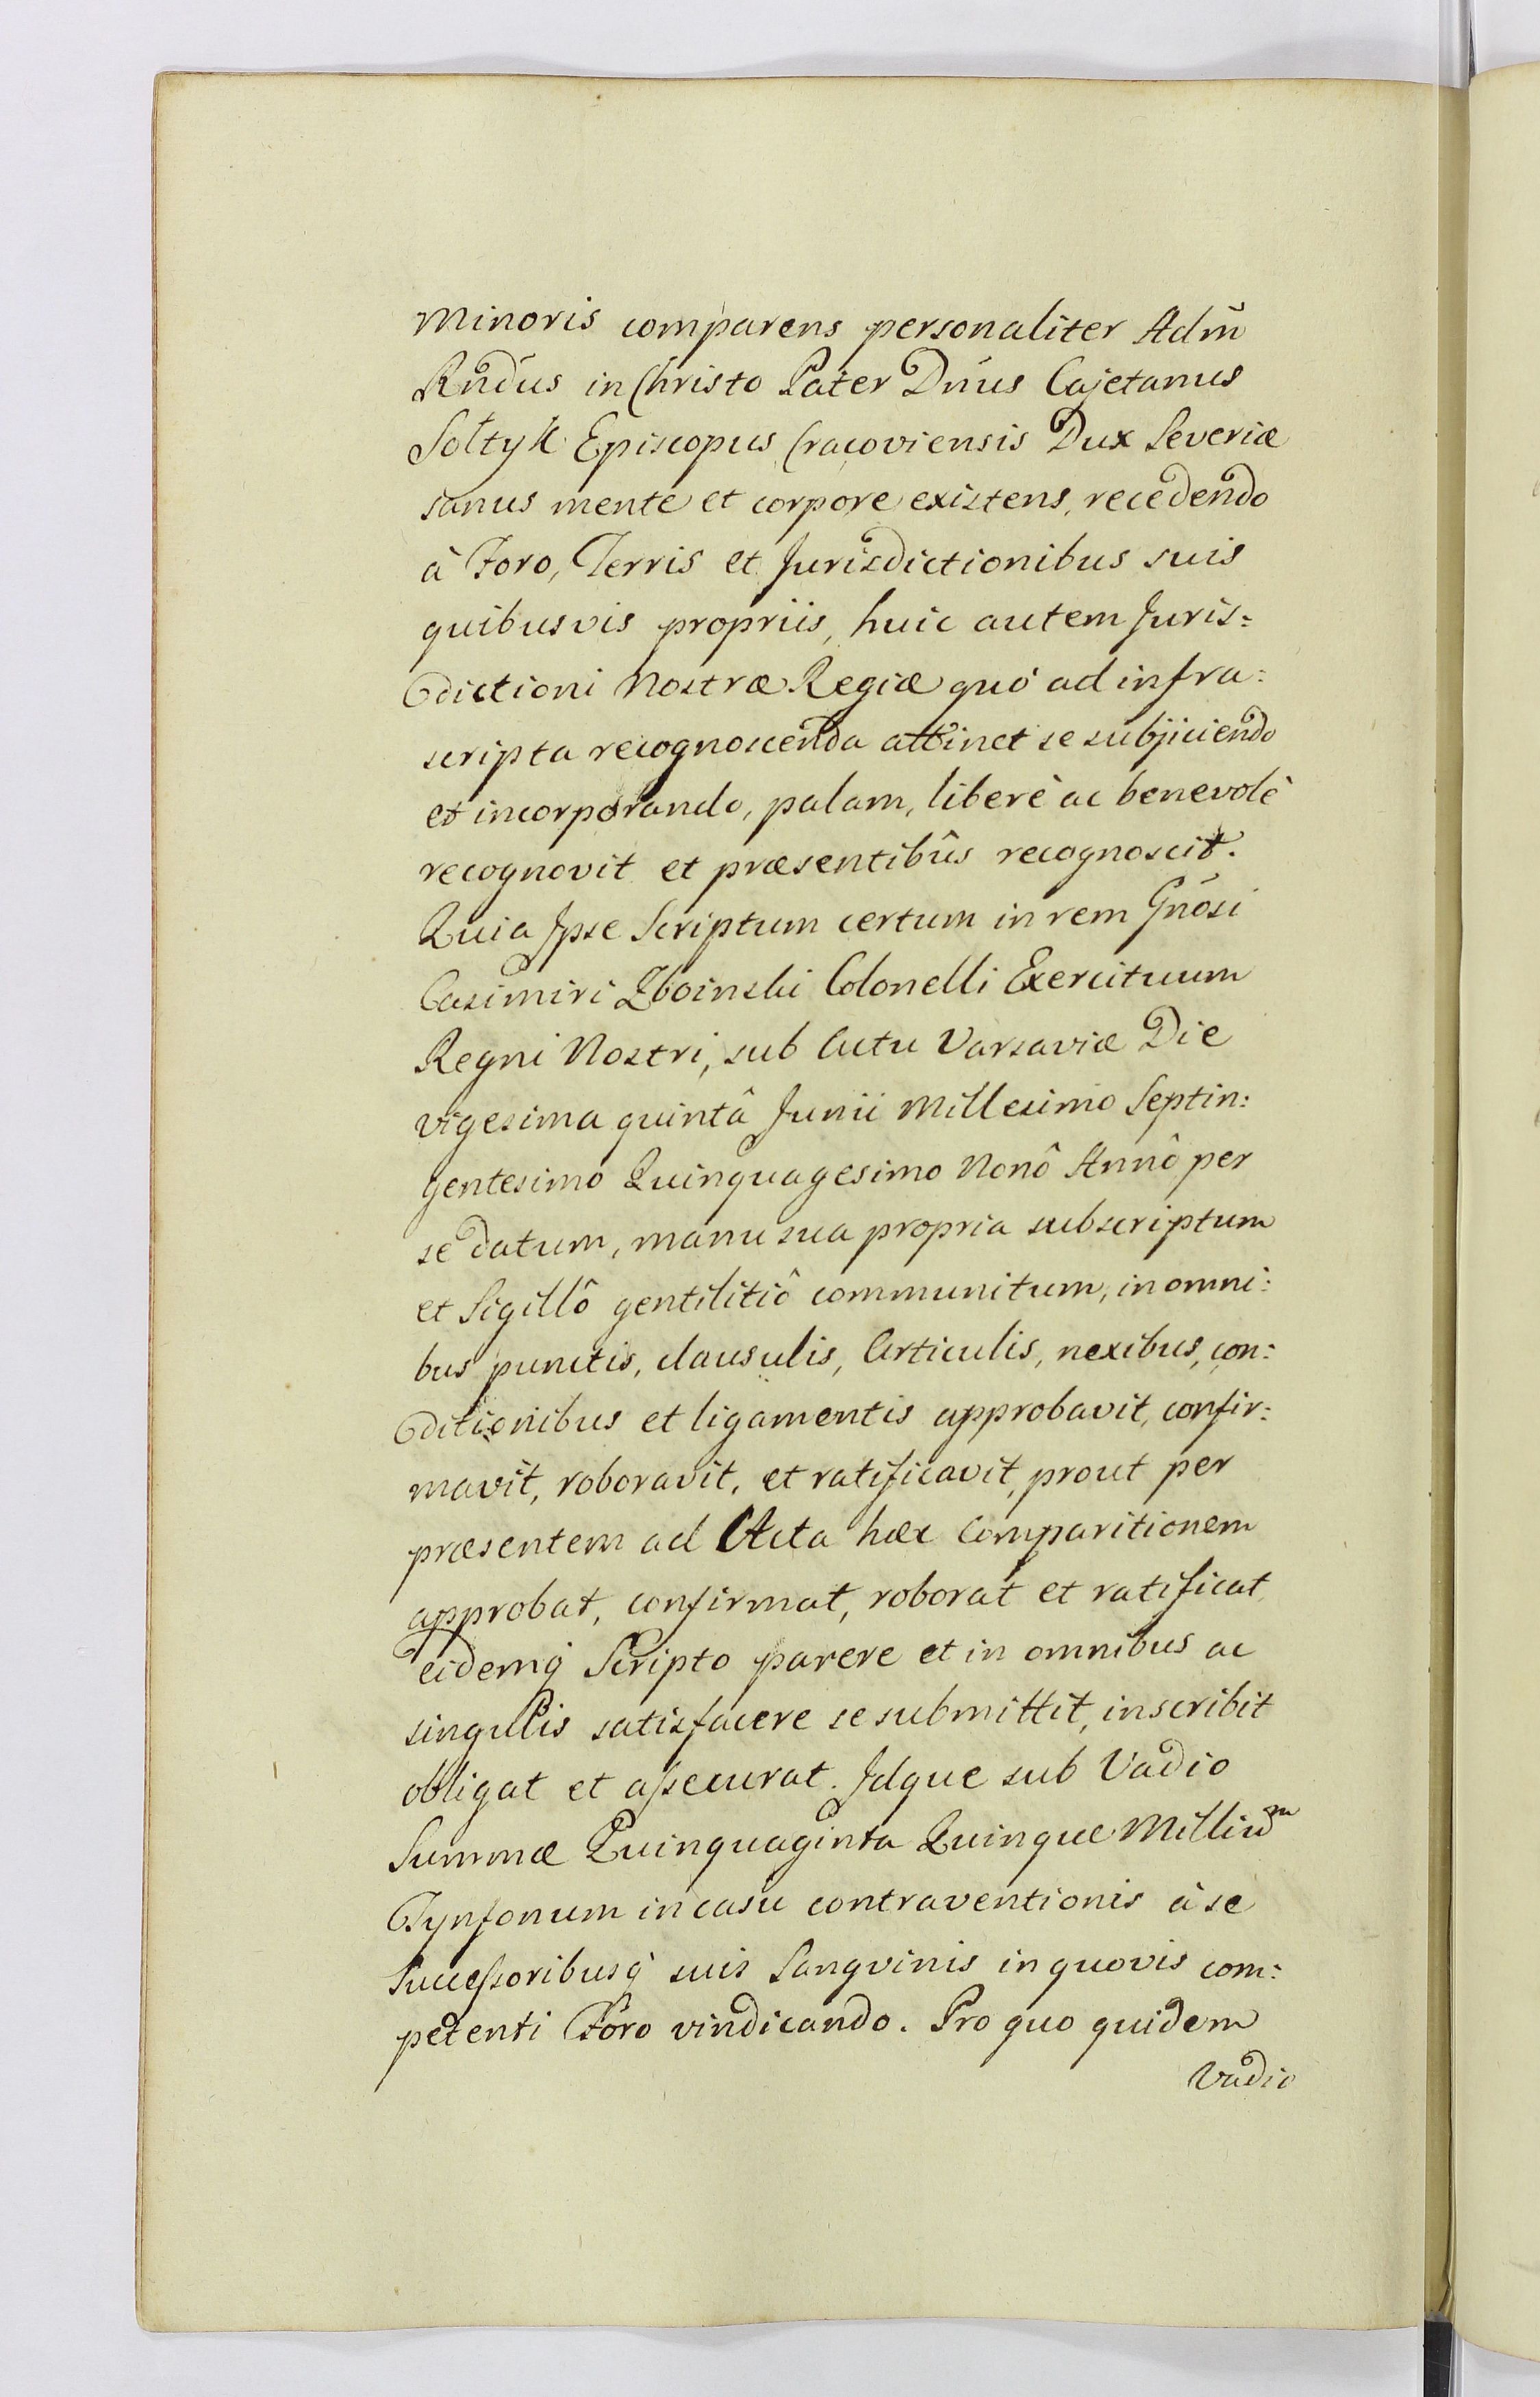 Minoris comparens personaliter Adm̃
Rñdus in Christo Pater Dñus Cajetanus
Sołtyk Episcopus Cracoviensis Dux Severiæ
sanus mente et corpore existens, recedendo
à Foro, Terris et Jurisdictionibus suis
quibusvis propriis, huic autem Juris=
dictioni Nostræ Regiæ quó ad infra=
scripta recognoscenda attinet se subjiciendo
et incorporando, palam, liberè ac benevolè
recognovit et præsentibûs recognoscit.
Quia Ipse Scriptum certum in rem Gñosi
Casimiri Zboinski Colonelli Exercituum
Regni Nostri, sub Actu Varsaviæ Die
vigesima quintâ Junii Millesimo Septin=
gentesimo Quinquagesimo Nonô Annô per
se datum, manu sua propria subscriptum
et Sigillô gentilitiô communitum, in omni=
bus punctis, clausulis, Articulis, nexibus, con=
ditionibus et ligamentis approbavit, confir=
mavit, roboravit, et ratificavit, prout per
præsentem ad Acta hæc Comparitionem
approbat, confirmat, roborat et ratificat,
eidemq́ Scripto parere et in omnibus ac
singulis satisfacere se submittit, inscribit
obligat et assecurat. Idque sub Vadio
Summæ Quinquaginta Quinque Milliūm
Tynfonum in casu contraventionis à se
Successoribusq́ suis Sangvinis in quovis com=
petenti Foro vindicando. Pro quo quidem
Vadio